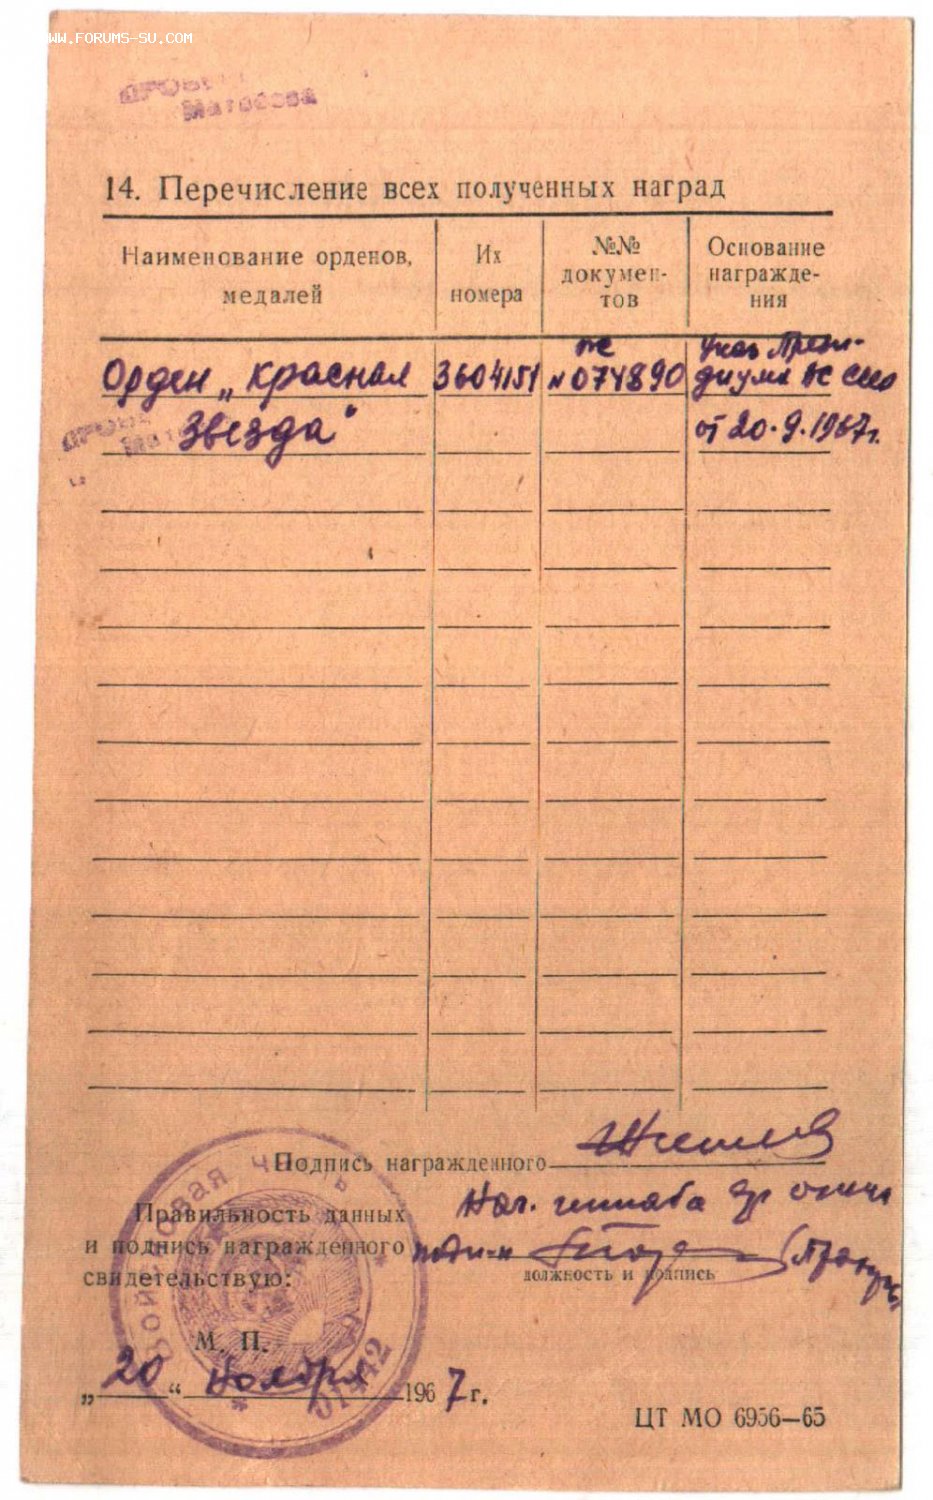 WWW.FORUMS-SU.COM
14. Перечисление всех полученных наград
Наименование орденов, медалей
Их номера
№№ докумен-
тов
Основание
награжде-
ния
Орден „Красная
Звезда"
3604151
№ 074890
Указ Прези-
диума ВС СССР
от 20.9.1967г.
Подпись награжденного
Правильность данных
и подпись награжденного
свидетельствую:
Нач. штаба
должность и подпись
М. П.
„20“ Ноября 1967 г.
Войсковая часть
ЦТ МО 6956—65